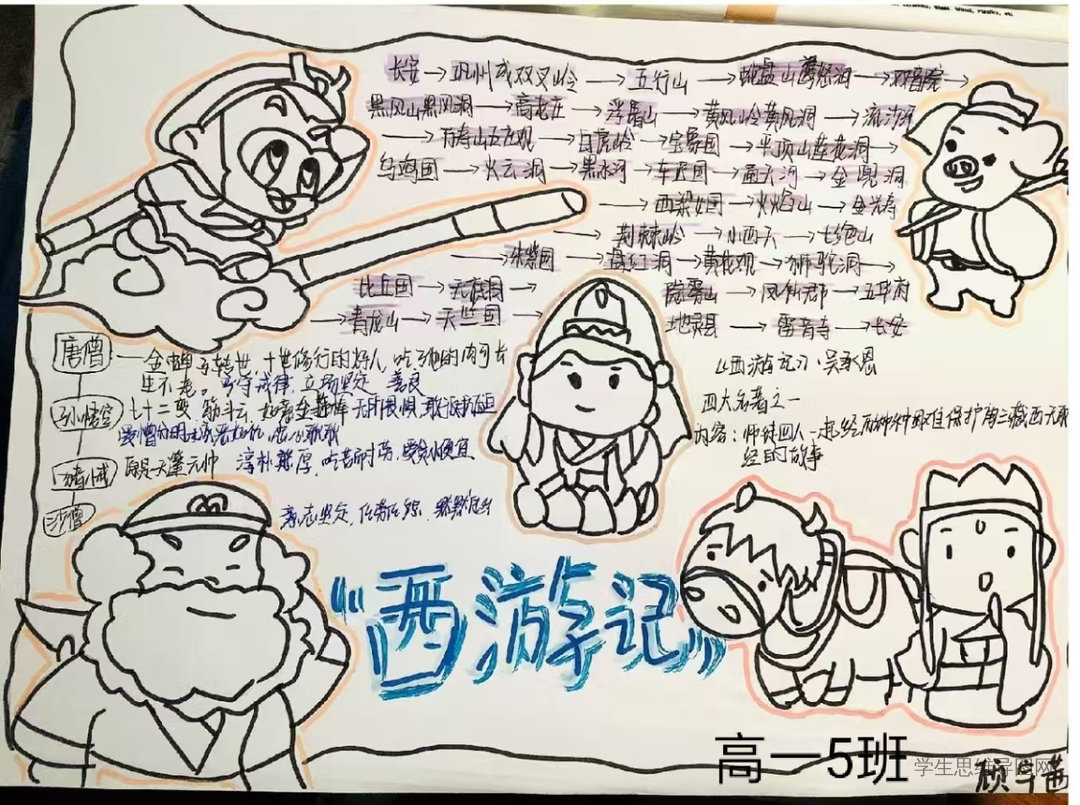 长安→巩州或双叉岭→五行山→蛇盘山鹰愁涧→观音院→
黑风山黑风洞→高老庄→浮屠山→黄风岭黄风洞→流沙河
→万寿山五庄观→白虎岭→宝象国→平顶山莲花洞→
乌鸡国→火云洞→黑水河→车迟国→通天河→金兜洞
→西梁女国→火焰山→金光寺
→荆棘岭→小西天→七绝山
→朱紫国→盘丝洞→黄花观→狮驼洞→
比丘国→无底洞→隐雾山→凤仙郡→玉华府
→青龙山→天竺国→地灵县→雷音寺→长安
唐僧—金蝉子转世,十世修行的好人,吃了他的肉可长
生不老。恪守戒律,立场坚定,善良
孙悟空 七十二变 筋斗云,如意金箍棒 无所畏惧,敢
忠心耿耿
猪戒 天蓬元帅 淳朴憨厚,吃苦耐劳,
沙僧 意志坚定,任劳任怨,默默
《西游记》·吴承恩
四大名著之一
内容:师徒四人一起经历种种艰难保护唐三藏西天取
经的故事
“西游记”
高一5班
学生思维导图网